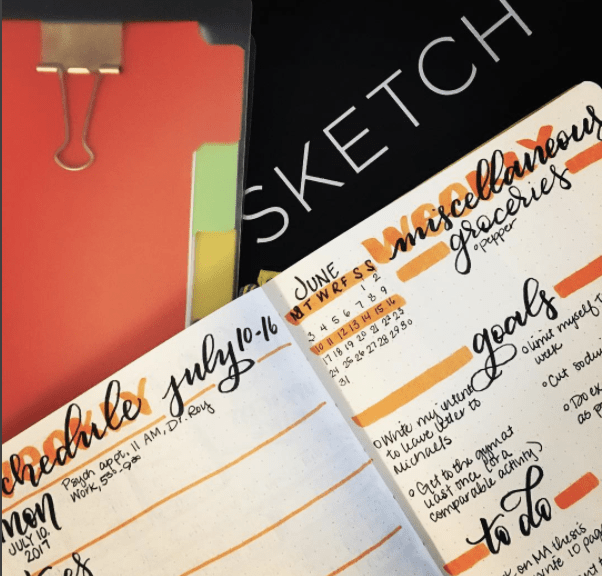 SKETCH
WEEKLY
miscellaneous
groceries
○ pepper
JUNE
M T W R F S S
1 2
3 4 5 6 7 8 9
10 11 12 13 14 15 16
17 18 19 20 21 22 23
24 25 26 27 28 29 30
31
goals
○ Write my intent
to leave letter to
Michaels
○ Get to the gym at
least once (or a
comparable activity)
○ limit myself
week
○ Cut
○ Do
as
to do
on MA thesis
write 10
WEEKLY
schedule july 10-16
Psych appt, 11 AM, Dr. Roy
Work, 5:30-9:00
mon
JULY 10,
2017